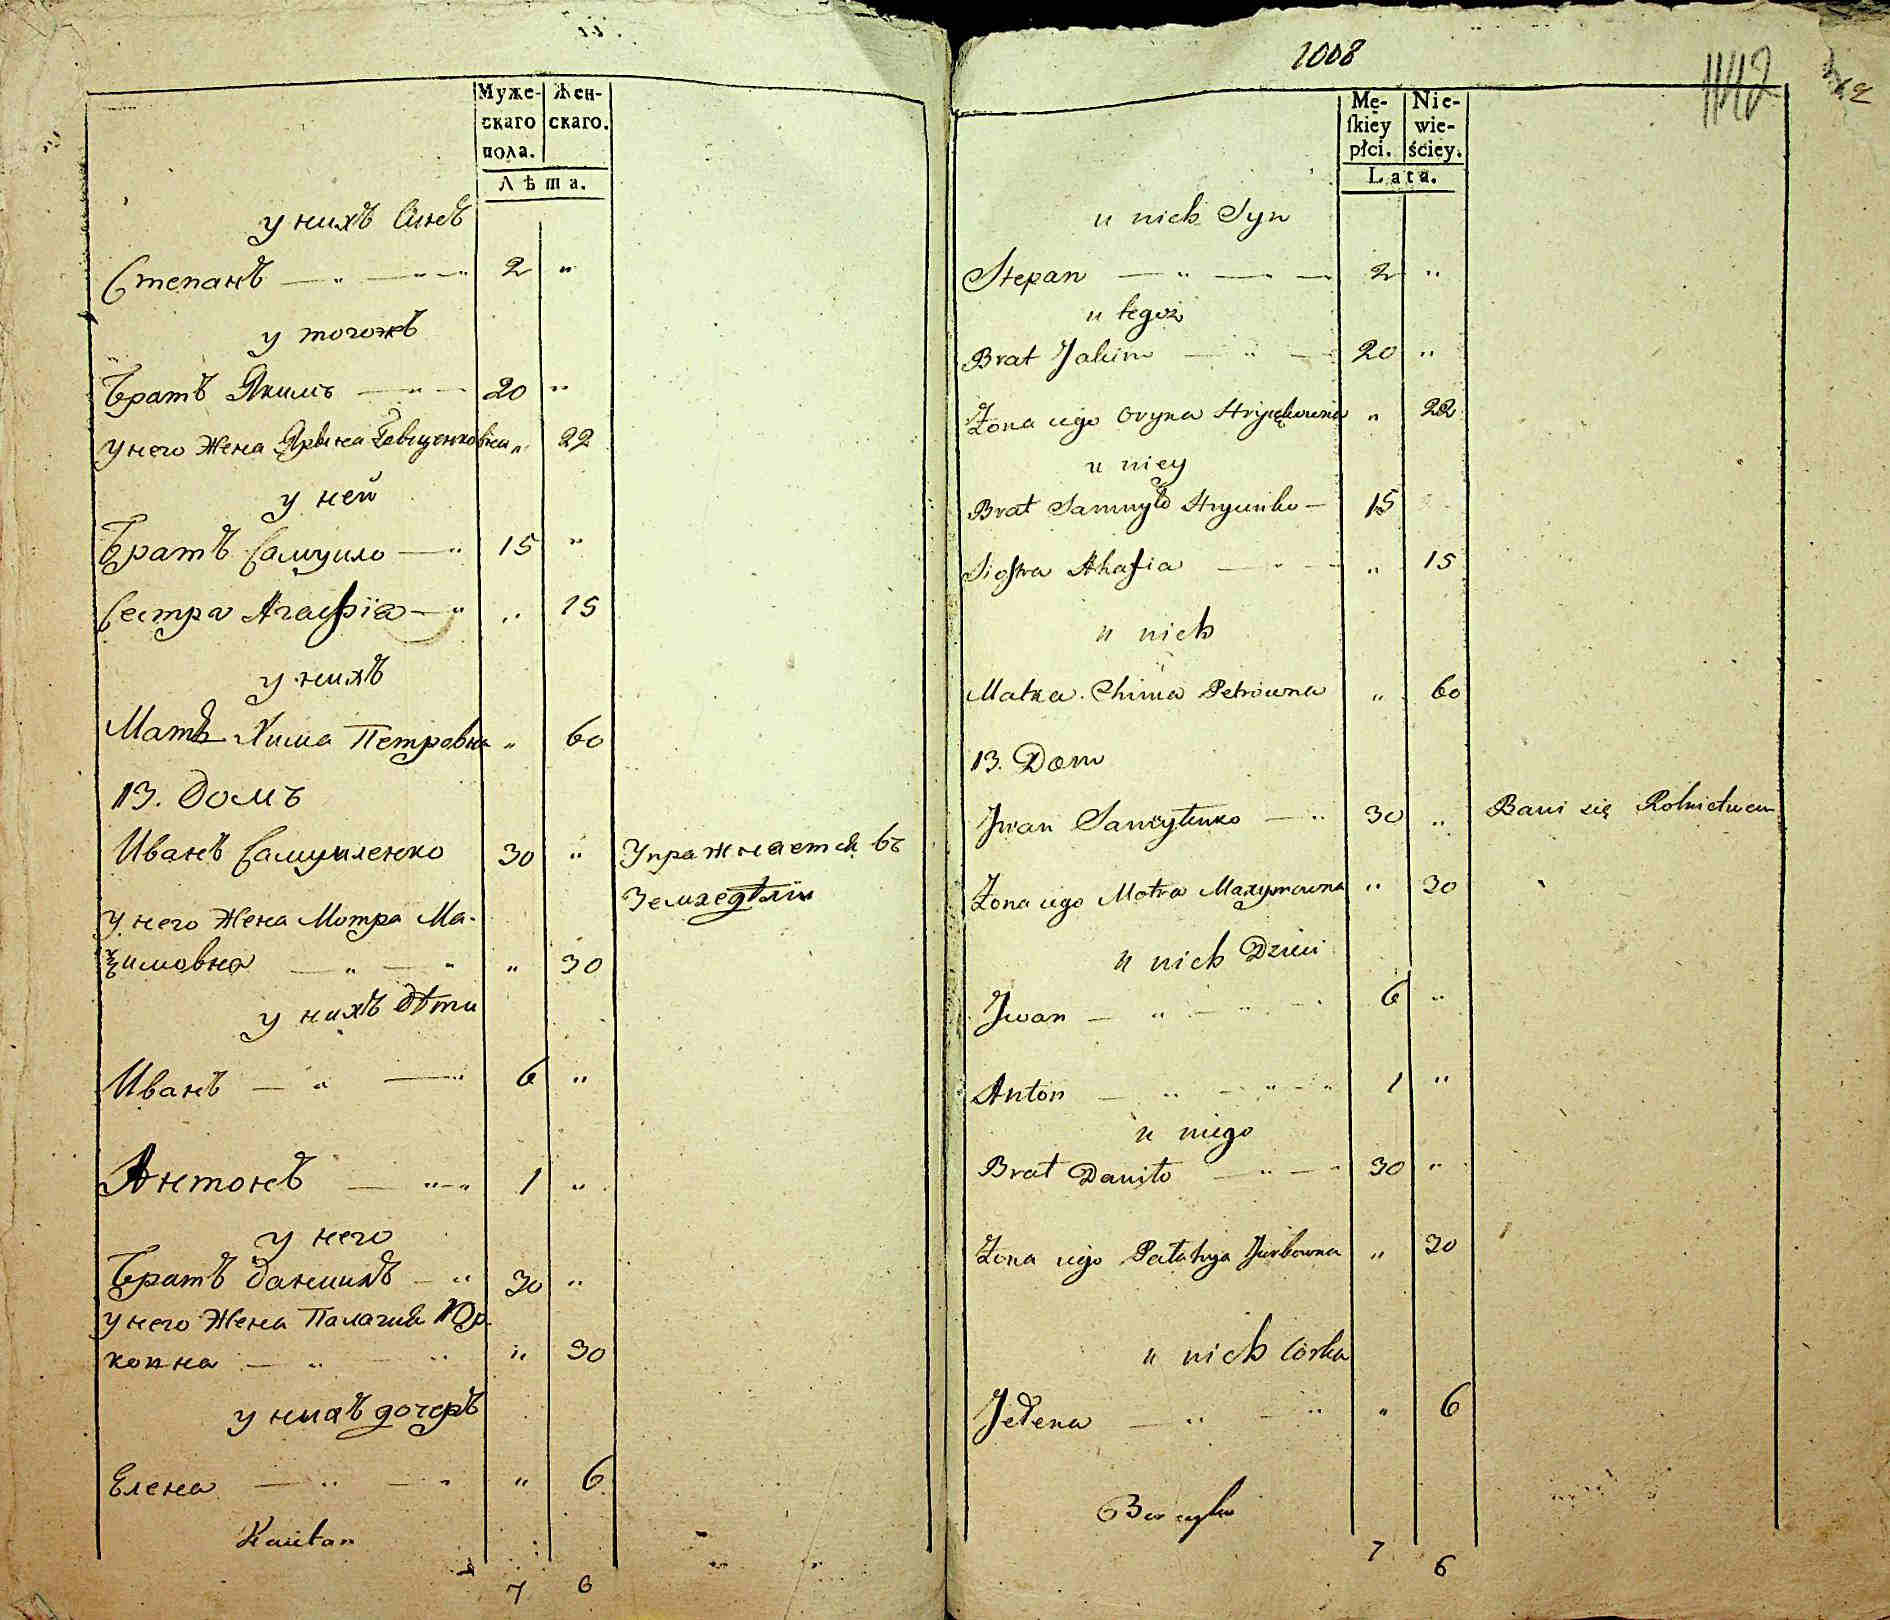 Муже- Жен-
скаго скаго.
пола.
Лѣта.
у нихъ Синъ
Степанъ — " — " — " 2 "
у тогожъ
Братъ Якимъ — " — 20 "
у него Жена Ярына " 22
у ней
Братъ Самуило — " 15 "
Сестра Агафія — " " 15
у нихъ
Мать Хима Петровна " 60
13. Домъ
Иванъ Самуиленко 30 " Упражнается въ
Земледѣліи
у него Жена Мотра Ма-
ѯимовна — " — " " 30
у нихъ Дѣти
Иванъ — " — " 6 "
Антонъ — " — " 1 "
у него
Братъ Данилъ — " 30 "
у него Жена Палагия Юр
ковна — " — " " 30
у нихъ дочеръ
Елена — " — " " 6
7 6
1008
1142
Mę- Nie-
ſkiey wie-
płci. ściey.
Lata.
u nich Syn
Stepan — " — — 2 "
u tegoż
Brat Jakim — " — 20 "
Żona iego Oryna " 22
u niey
Brat Samuyło Hrycenko — 15
Siostra Ahafia — " — " 15
u nich
Matka Chima Petrowna " 60
13. Dom
Jwan Samuylenko — " 30 " Bawi się Rolnictwem
Żona iego Motra Maxymowna " 30
u nich Dzieci
Jwan — " — " — 6 "
Anton — " — " — " 1 "
u niego
Brat Daniło — " — " 30 "
Żona iego Pałahyja Jurkowna " 30
u nich Córka
Jełena — " — " " 6
7
6